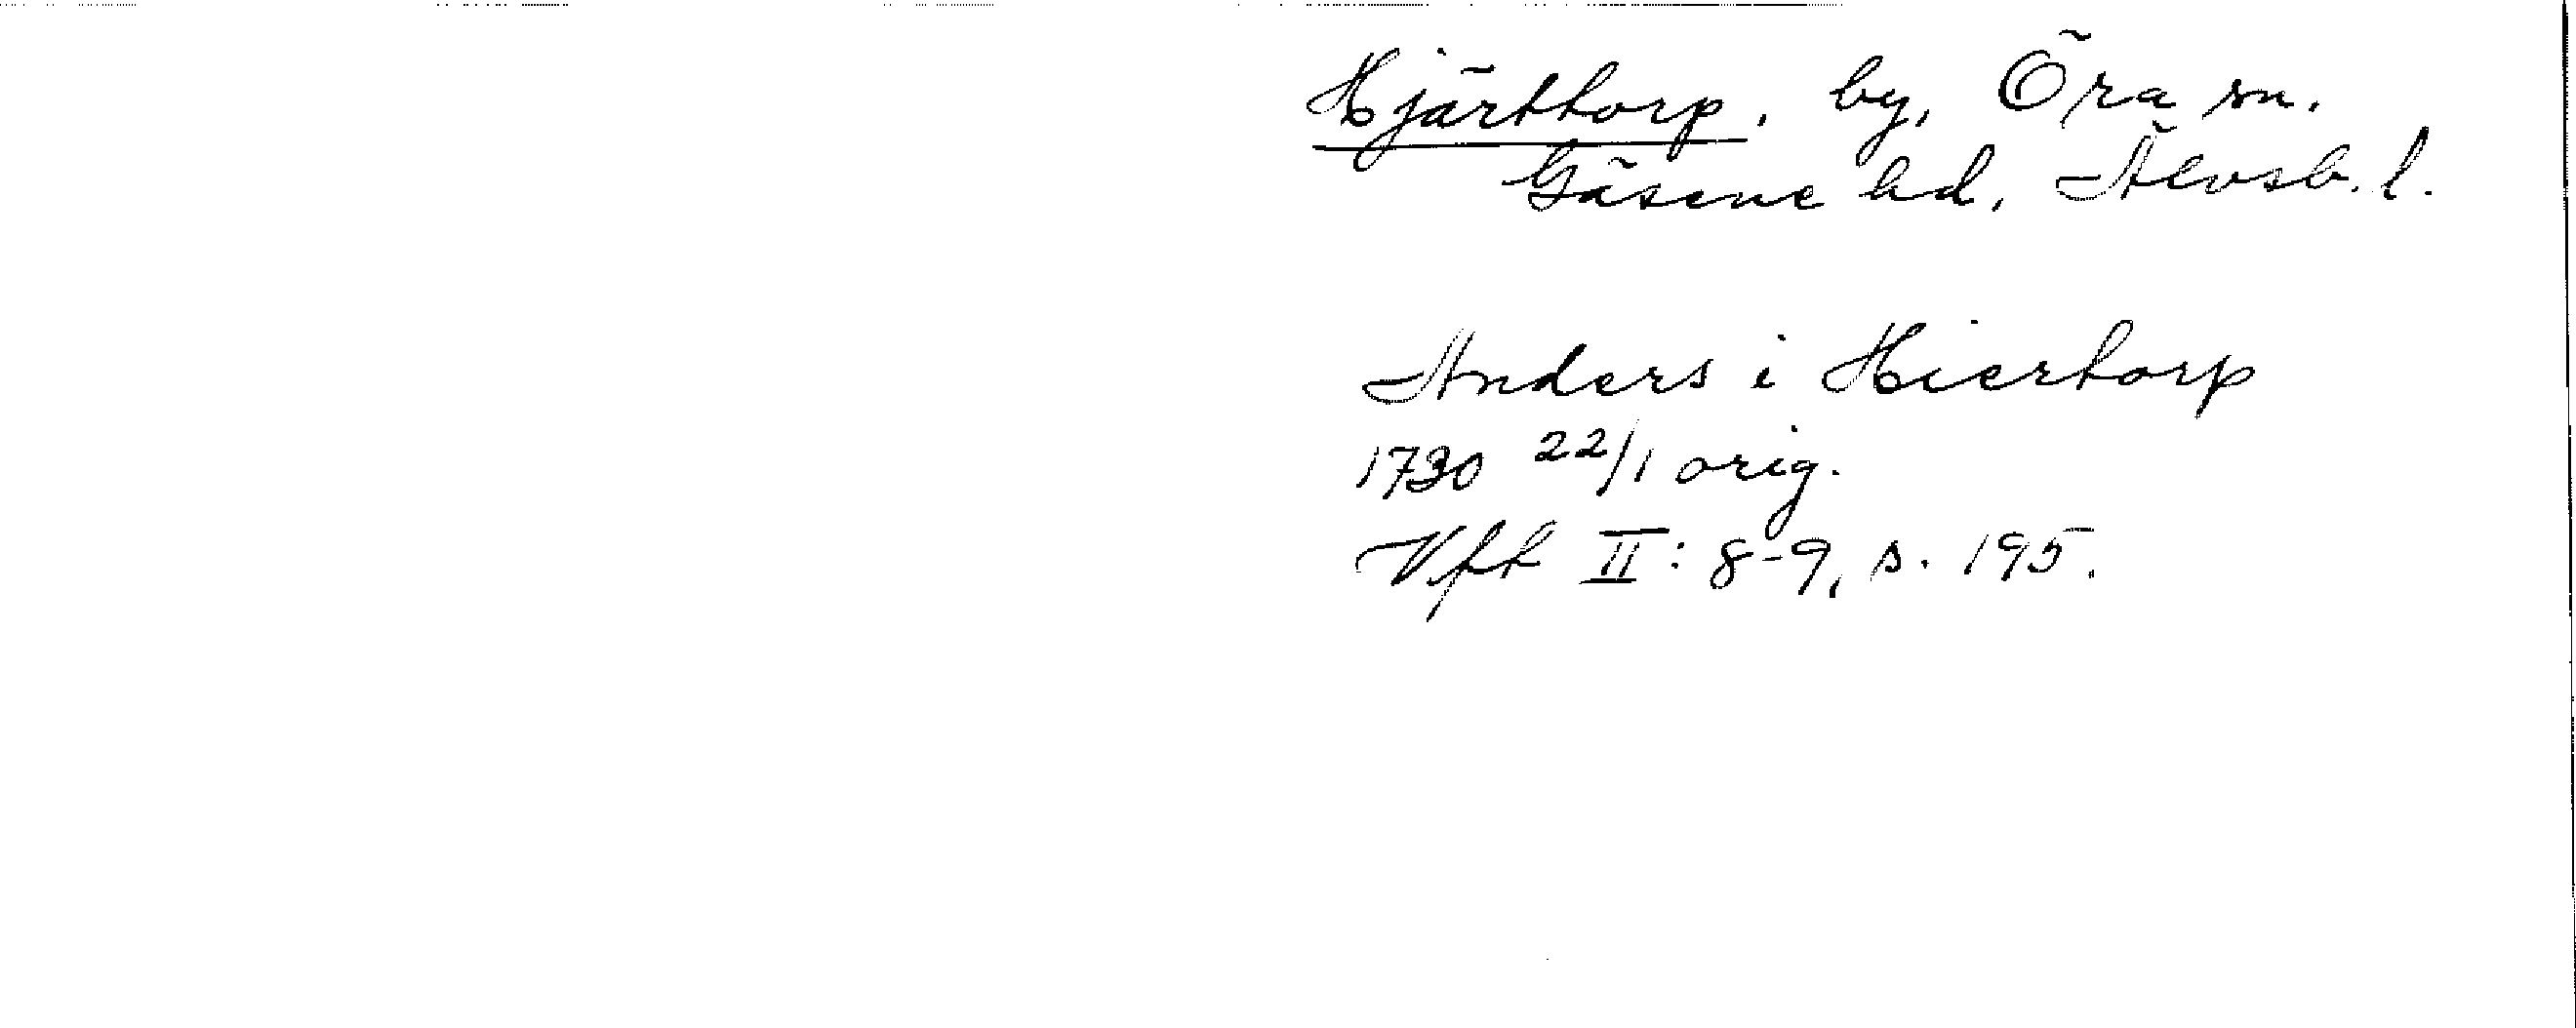 Hjärttorp, by, Öra sn.
Gäsene hd, Älvsb. l.
Anders i Hiertorp
1730 22/1 orig.
Vft II: 8-9, s. 195.